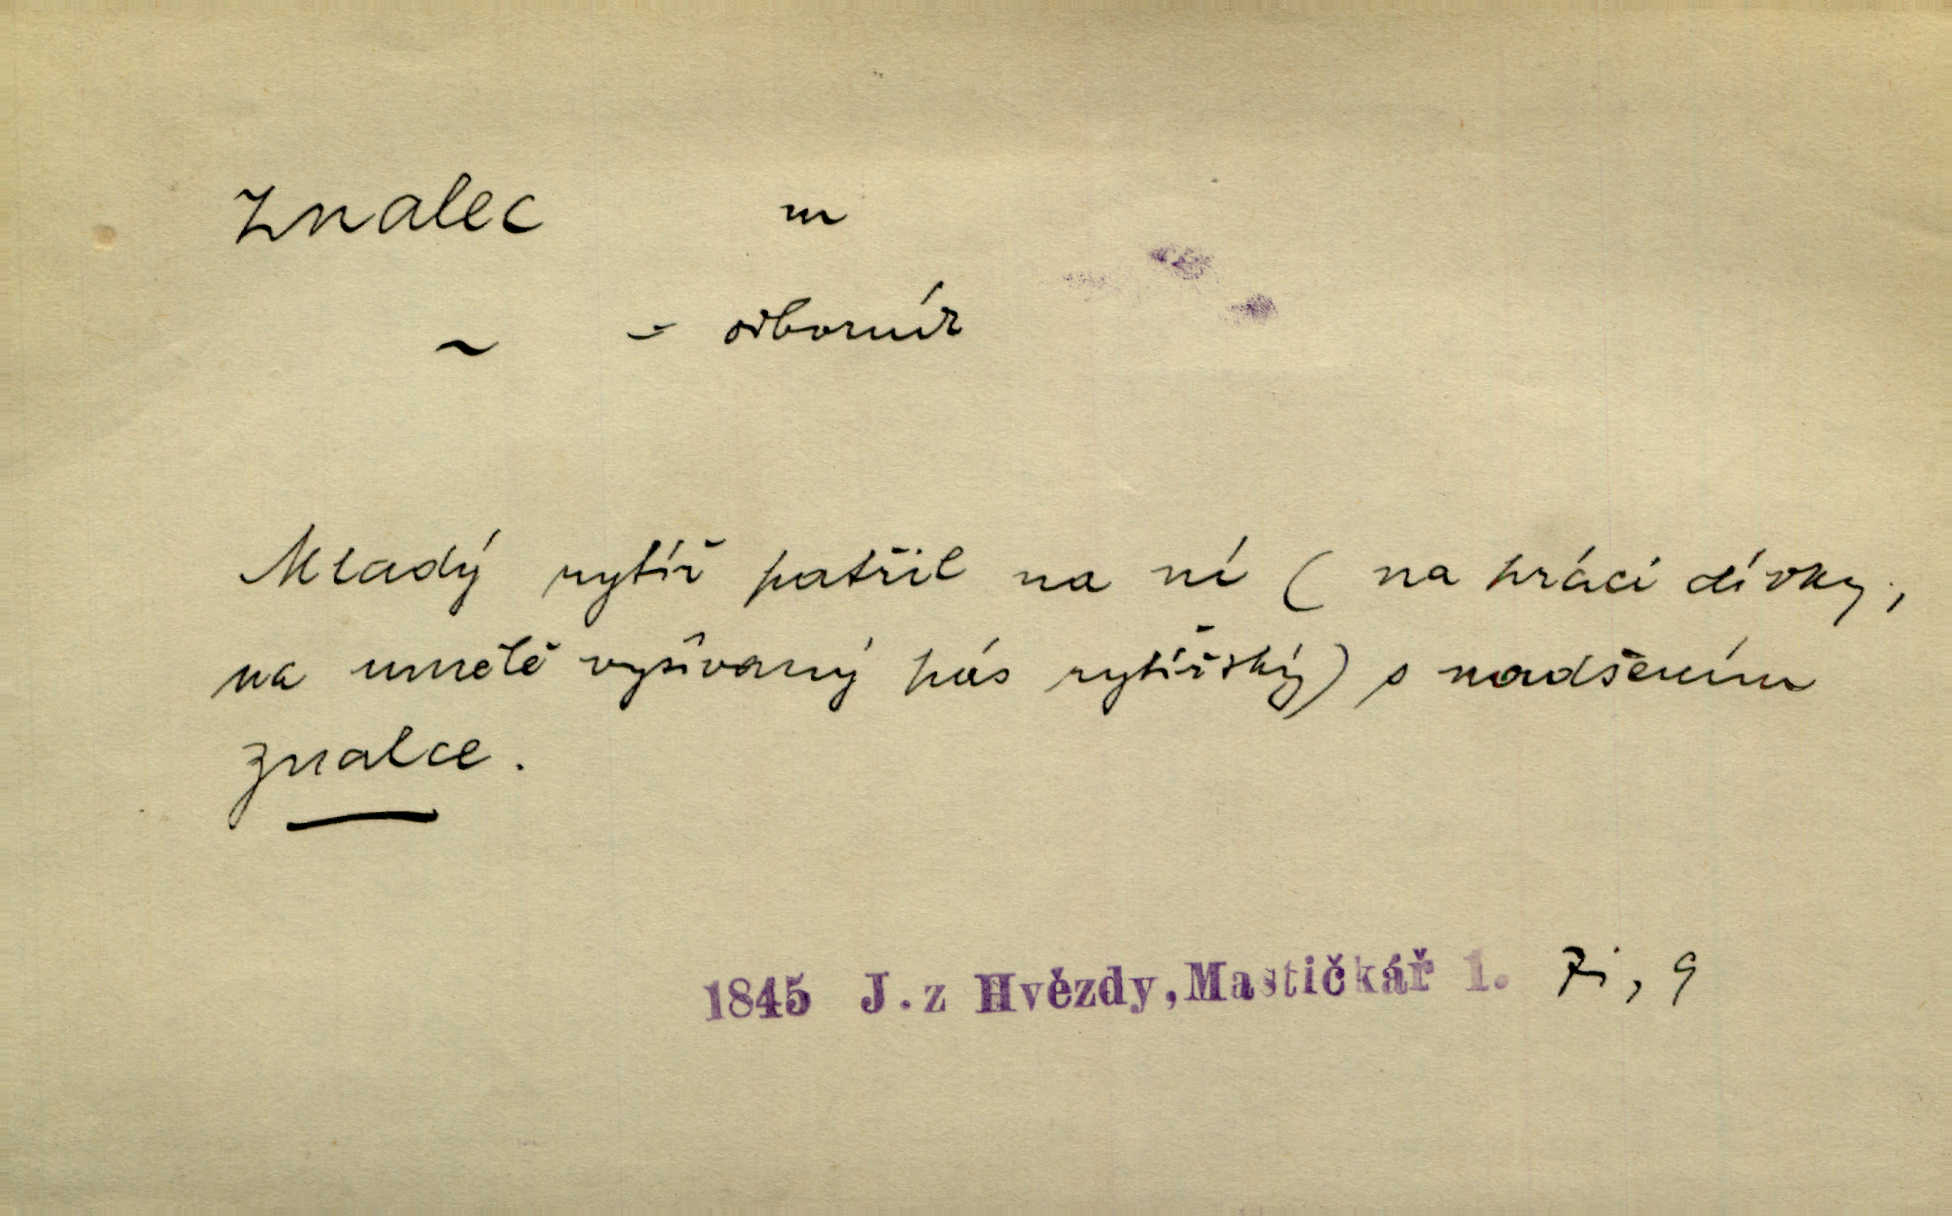 Znalec m
~ = odborník
Mladý rytíř patřil na ni ( na práci dívky,
na umělě vyšívaný pás rytířský) s nadšením
znalce.
1845 J. z Hvězdy, Mastičkář 1. 7i, 9